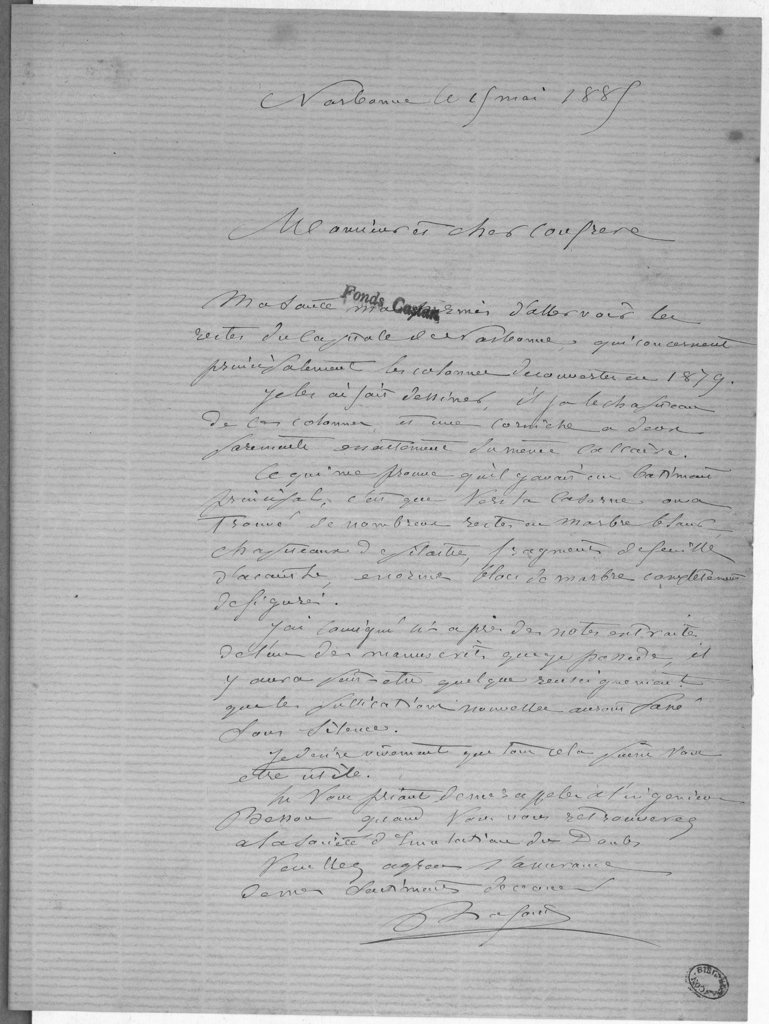 Narbonne le 15 mai 1885
Monsieur et cher confrere
Fonds Castan
Ma santé m'a permis d'aller voir les
restes du Capitole de Narbonne, qui concernent
principalement les colonnes decouvertes en 1879.
Je les ai fait dessiner, il y a le chapiteau
de ces colonnes, et une corniche a deux
parements exactement du même calcaire.
Ce qui me prouve qu'il y avait un batiment
principal, c'est que vers la caserne on a
trouvé de nombreux restes en marbre blanc,
chapiteaux de pilastre, fragments de feuille
d'acanthe, enorme bloc de marbre completement
defiguré.
J'ai consigné ci-apres des notes extraites
de l'un des manuscrits que je possede, il
y aura peut-etre quelque renseignement
que les publications nouvelles auront passé
sous silence.
Je desire vivement que tout cela puisse vous
etre utile.
En vous priant de me rappeler a l'ingenieur
quand vous vous retrouverez
a la société d'Emulation du Doubs
Veuillez agreer l'assurance
de mes sentiments devoués